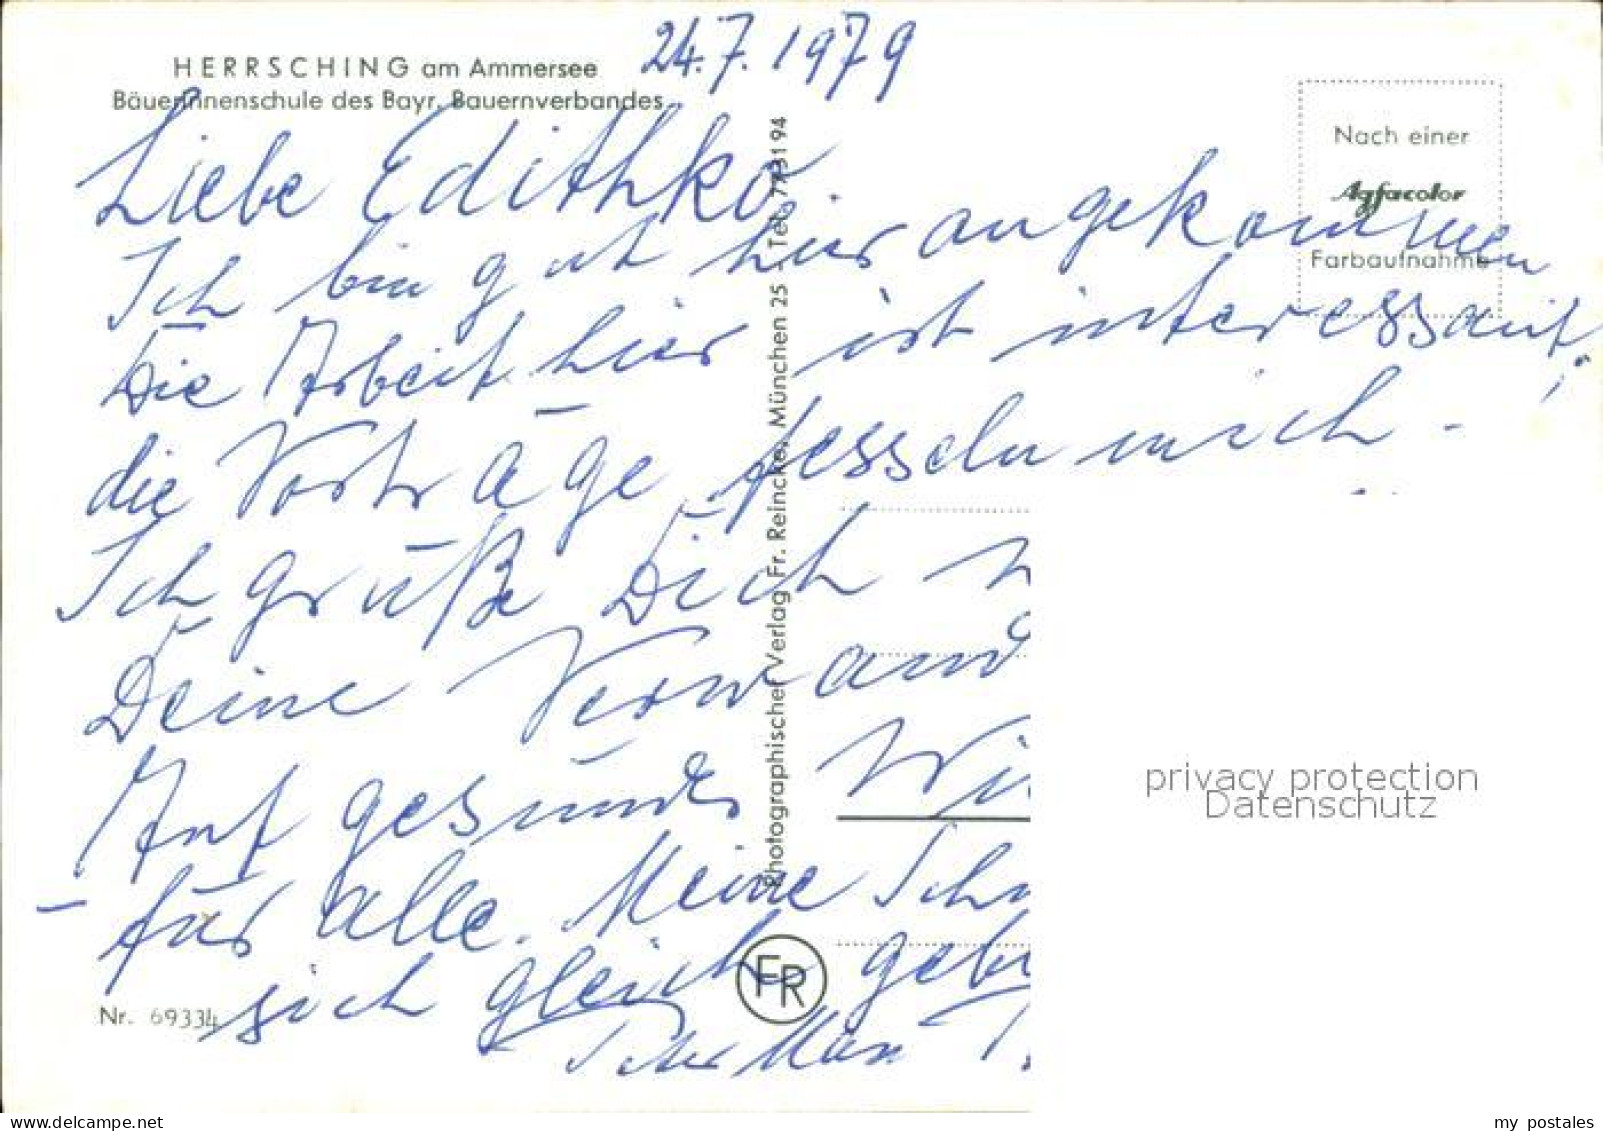 24.7.1979
HERRSCHING am Ammersee
Bäuerinnenschule des Bayr. Bauernverbandes
Liebe Edithko,
Ich bin gut hier angekommen
Die Arbeit hier ist interessant,
die Vorträge fesseln mich -
Ich grüße Dich
Deine Verwand
Auf gesundes Wi
- für alle. Meine Sch
sich gleich geb
Nr. 69334
Photographischer Verlag Fr. Reincke, München 25 - Tel. 773194
FR
Nach einer
Agfacolor
Farbaufnahme
privacy protection
Datenschutz
delcampe.net
my_postales